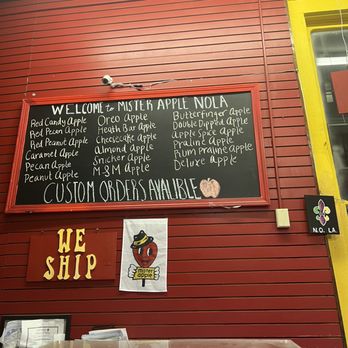 WELCOME to MISTER APPLE NOLA
Red Candy Apple
Red Pecan Apple
Red Peanut Apple
Caramel Apple
Pecan Apple
Peanut Apple
Oreo Apple
Heath Bar Apple
Cheesecake Apple
Almond Apple
Snicker Apple
M&M Apple
Butterfinger Apple
Double Dipped Apple
Apple Spice Apple
Praline Apple
Rum Praline Apple
Deluxe Apple
CUSTOM ORDERS AVALIBLE
WE
SHIP
mister
apple
N.O. LA.